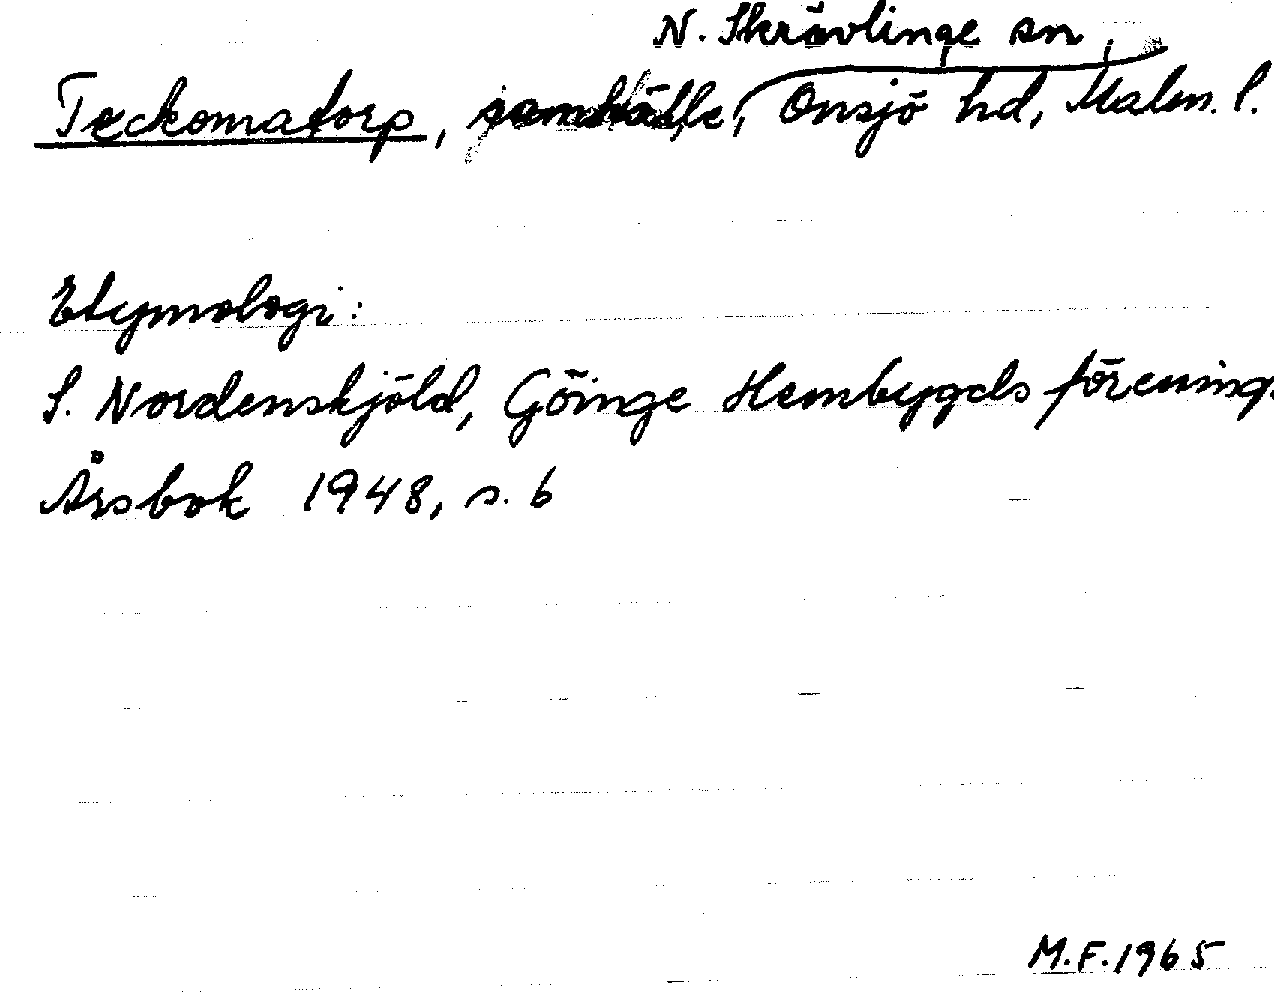 N. Skrävlinge sn,
Teckomatorp, samhälle, Onsjö hd, Malm. l.
Etymologi:
S. Nordenskjöld, Göinge Hembygdsförenings
Årsbok 1948, s. 6
M.F. 1965